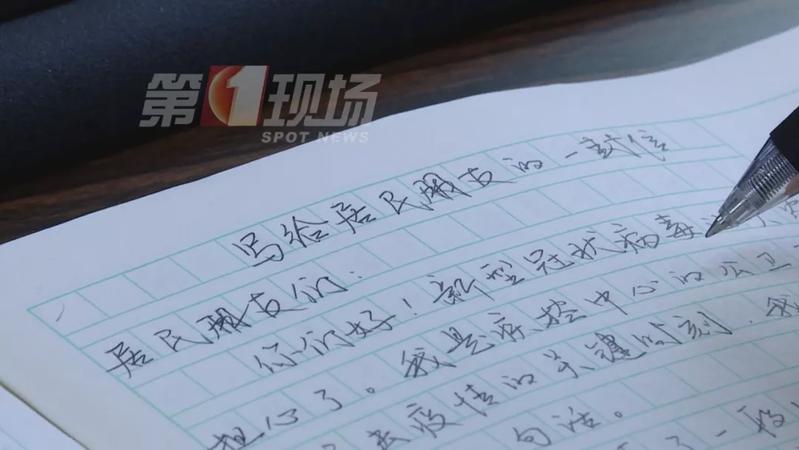 第1现场
SPOT NEWS
写给居民朋友的一封信
居民朋友们：
你们好！新型冠状病毒
担心了。我是疾控中心的公卫
疫情的关键时刻，我
句话。
了一段